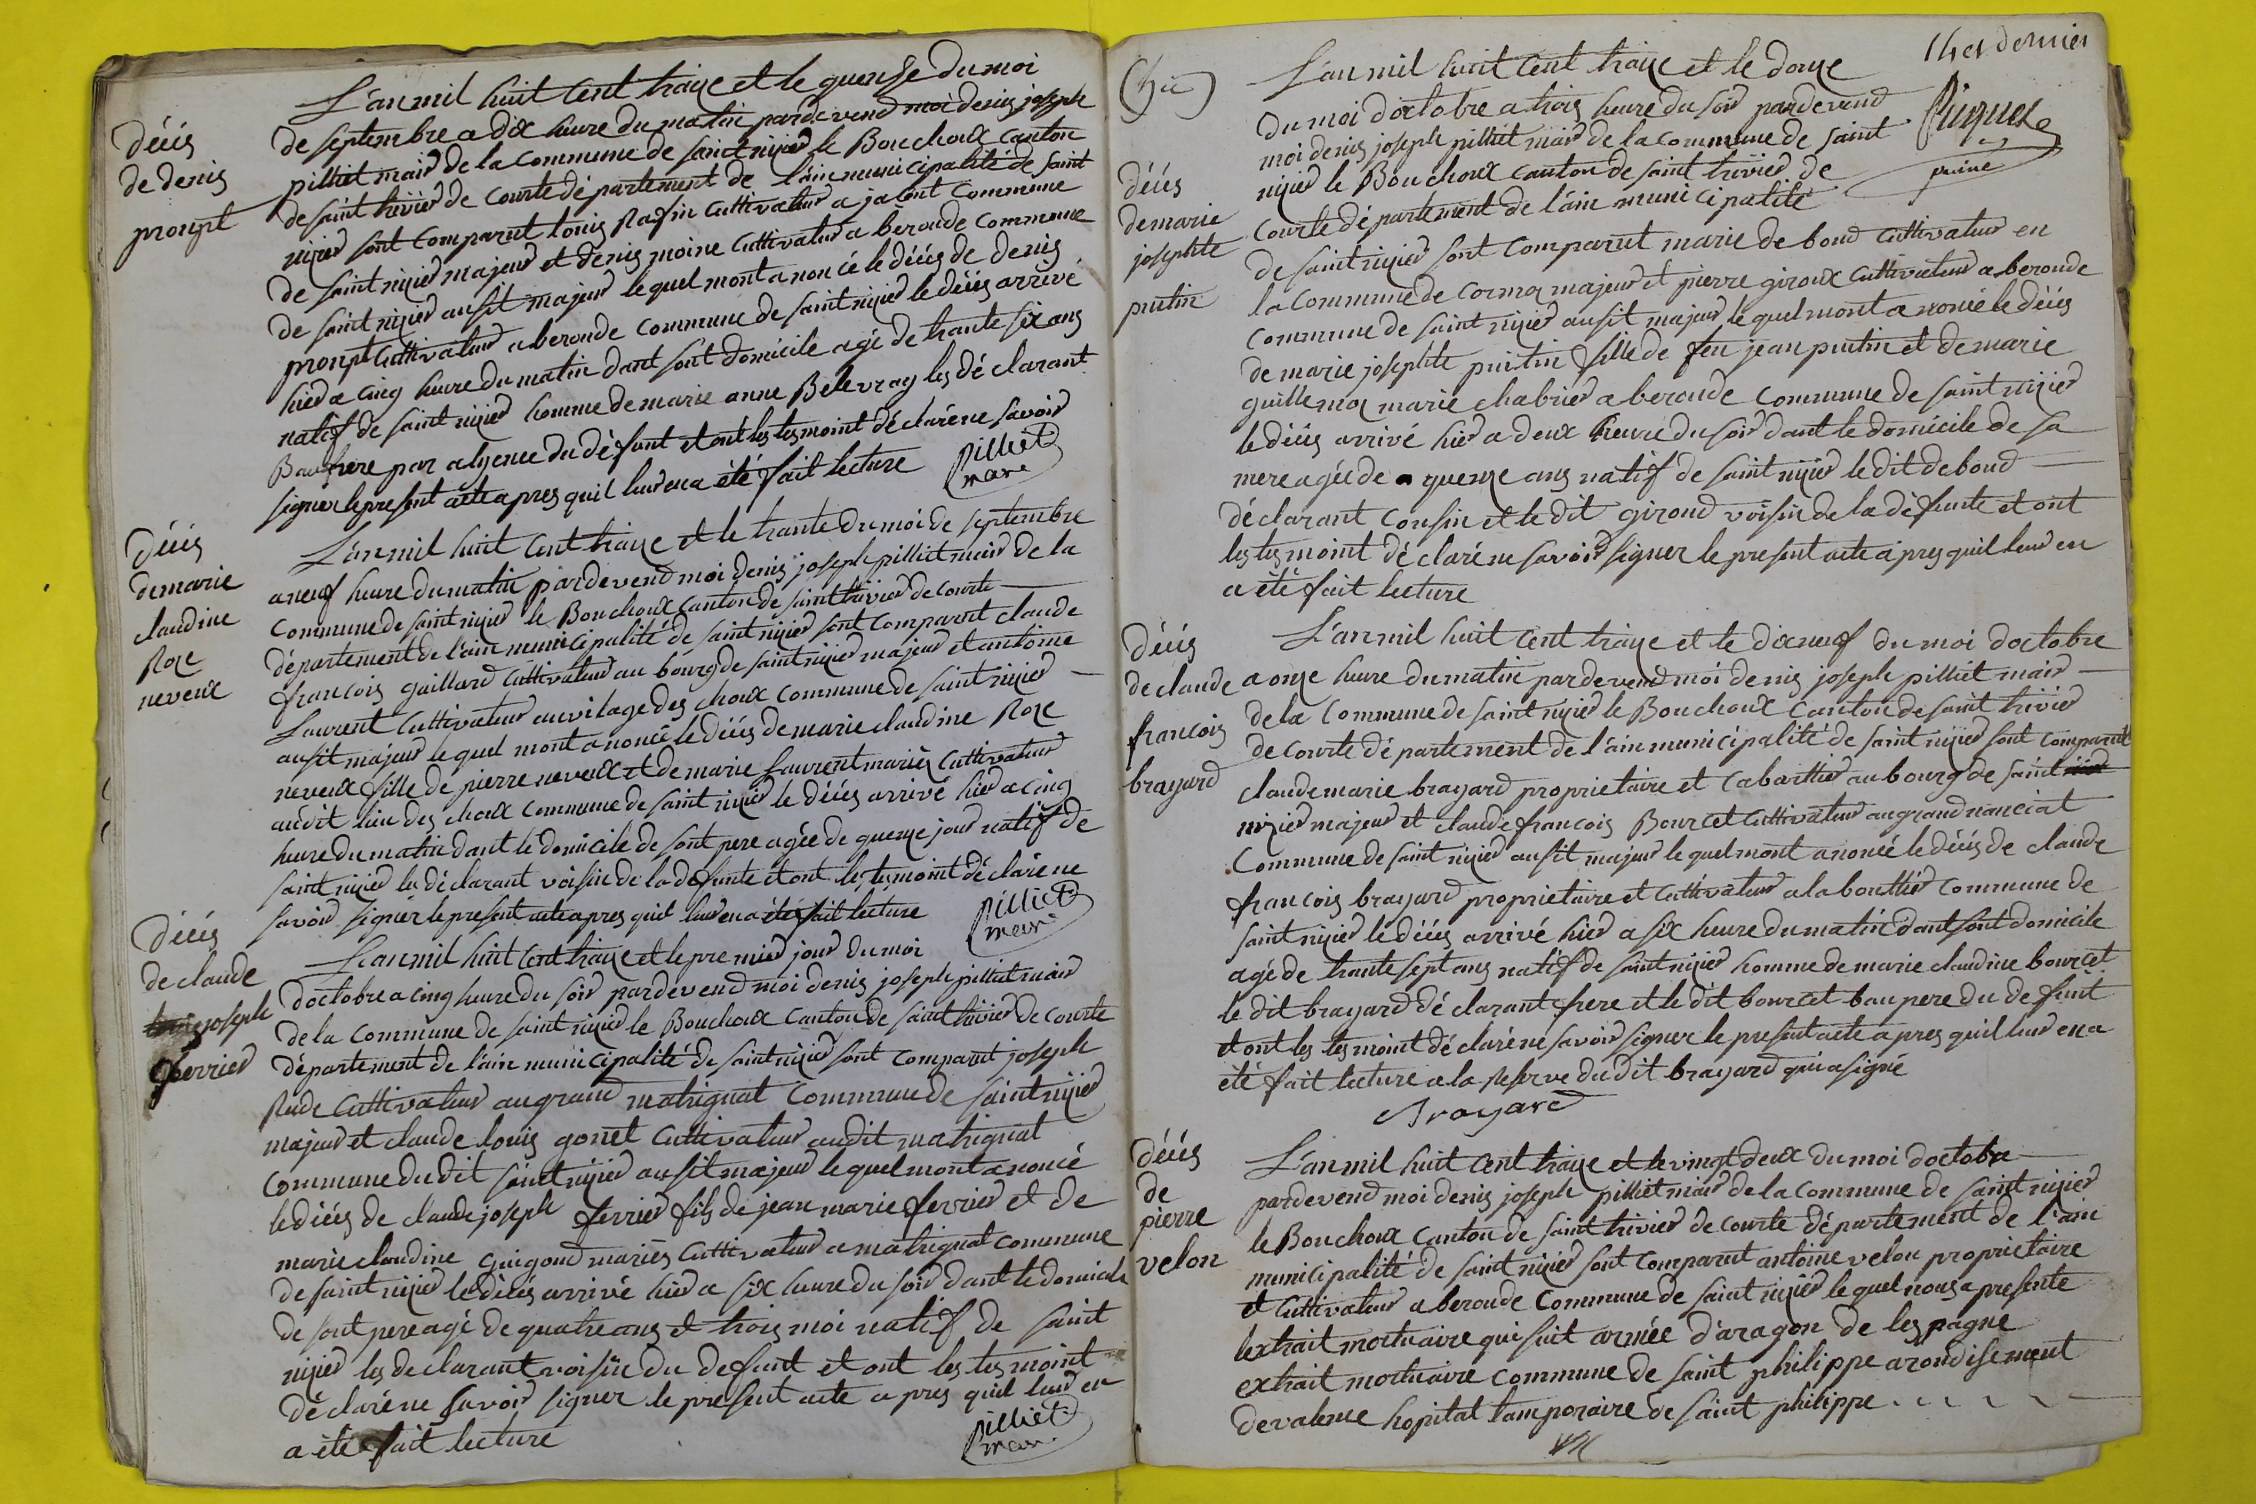 décés
de denis
prompt
L'an mil huit cent traize et le quense du moi
de septembre a dix heure du matin pardevend moi denis joseph
pilliet maire de la commune de saint nizier le Bouchoux canton
de saint trivier de courte département de l'ain municipalité de saint
nizier sont comparut louis Rafin cultivateur a jacont commune
de saint nizier majeur et denis moine cultivateur a beroude commune
de saint nizier ausit majeur le quel mont anoncé le décés de denis
prompt cultivateur a beroude commune de saint nizier le décés arrivé
hier a cinq heure du matin dant sont domicile agé de trante six ans
natif de saint nizier homme de marie anne Belevray les déclarant
Baufrere par alyence du défunt et ont les tesmoint déclaré ne savoir
signer le present acte apres quil leur en a été fait lecture
pilliet
mair
décés
de marie
claudine
Roze
neveux
L'an mil huit cent traize et le trante du moi de septembre
a neuf heure du matin pardevend moi denis joseph pilliet mair de la
commune de saint nizier le Bouchoux canton de saint trivier de courte
département de l'ain municipalité de saint nizier sont comparut claude
francois gaillard cultivateur au bourg de saint nizier majeur et antoine
Laurent cultivateur au vilage des choux commune de saint nizier
ausit majeur le quel mont anoncé le décés de marie claudine Roze
neveux fille de pierre neveux et de marie Laurent mariés cultivateur
audit lieu des choux commune de saint nizier le décés arrivé hier a cinq
heure du matin dant le domicile de sont pere agée de quenze jour natif de
saint nizier les déclarant voisin de la defunte et ont les tesmoint déclaré ne
savoir signer le present acte apres quil leur en a été fait lecture
pilliet
mair
décés
de claude
joseph
ferrier
L'an mil huit cent traize et le premier jour du moi
doctobre a cinq heure du soir pardevend moi denis joseph pilliet mair
de la commune de saint nizier le Bouchoux canton de saint trivier de courte
département de l'ain municipalité de saint nizier sont comparut joseph
Rude cultivateur au grand matrignat commune de saint nizier
majeur et claude louis gonet cultivateur audit matrignat
commune du dit saint nizier ausit majeur le quel mont anoncé
le décés de claude joseph ferrier fils de jean marie ferrier et de
marie claudine guigoud mariés cultivateur a matrignat commune
de saint nizier le décés arrivé hier a six heure du soir dant le domicile
de sont pere agé de quatre ans et trois moi natif de saint
nizier les declarant voisin du defunt et ont les tesmoint
déclaré ne savoir signer le present acte apres quil leur en
a été fait lecture
pilliet
mair
14 et dernier
L'an mil huit cent traize et le douze
du moi doctobre a trois heure du soir pardevend
moi denis joseph pilliet mair de la commune de saint
nizier le Bouchoux canton de saint trivier de
courte département de l'ain municipalité
décés
de marie
josephte
putin
de saint nizier sont comparut marie de boud cultivateur en
la commune de cormoz majeur et pierre giroux cultivateur a beroude
commune de saint nizier ausit majeur le quel mont anoncé le décés
de marie josephte putin fille de feu jean putin et de marie
guillemoz marie chabrier a beroude commune de saint nizier
le décés arrivé hier a deux heure du soir dant le domicile de sa
mere agée de quenze ans natif de saint nizier le dit de boud
déclarant cousin et le dit giroud voisin de la défunte et ont
les tesmoint déclaré ne savoir signer le present acte apres quil leur en
a été fait lecture
décés
de claude
francois
brayard
L'an mil huit cent traize et le dix neuf du moi doctobre
a onze heure du matin pardevend moi denis joseph pilliet mair
de la commune de saint nizier le Bouchoux canton de saint trivier
de courte département de l'ain municipalité de saint nizier sont comparut
claude marie brayard proprietaire et cabarttier au bourg de saint
nizier majeur et claude francois Bourcet cultivateur au grand nanciat
commune de saint nizier ausit majeur le quel mont anoncé le décés de claude
francois brayard proprietaire et cultivateur a la bouttier commune de
saint nizier le décés arrivé hier a six heure du matin dant sont domicile
agé de trante sept ans natif de saint nizier homme de marie claudine bourcet
le dit brayard déclarant frere et le dit bourcet bau pere du defunt
et ont les tesmoint déclaré ne savoir signer le present acte apres quil leur en a
été fait lecture a la reserve du dit brayard qui a signé
Brayard
décés
de
pierre
velon
L'an mil huit cent traize et le vingt deux du moi doctobre
pardevend moi denis joseph pilliet mair de la commune de saint nizier
le Bouchoux canton de saint trivier de courte département de l'ain
municipalité de saint nizier sont comparut antoine velon proprietaire
et cultivateur a beroude commune de saint nizier le quel nous a presenté
lextrait mortuaire qui suit armée d'aragon de lespagne
extrait mortuaire commune de saint philippe arondisement
de valence hopital tamporaire de saint philippe